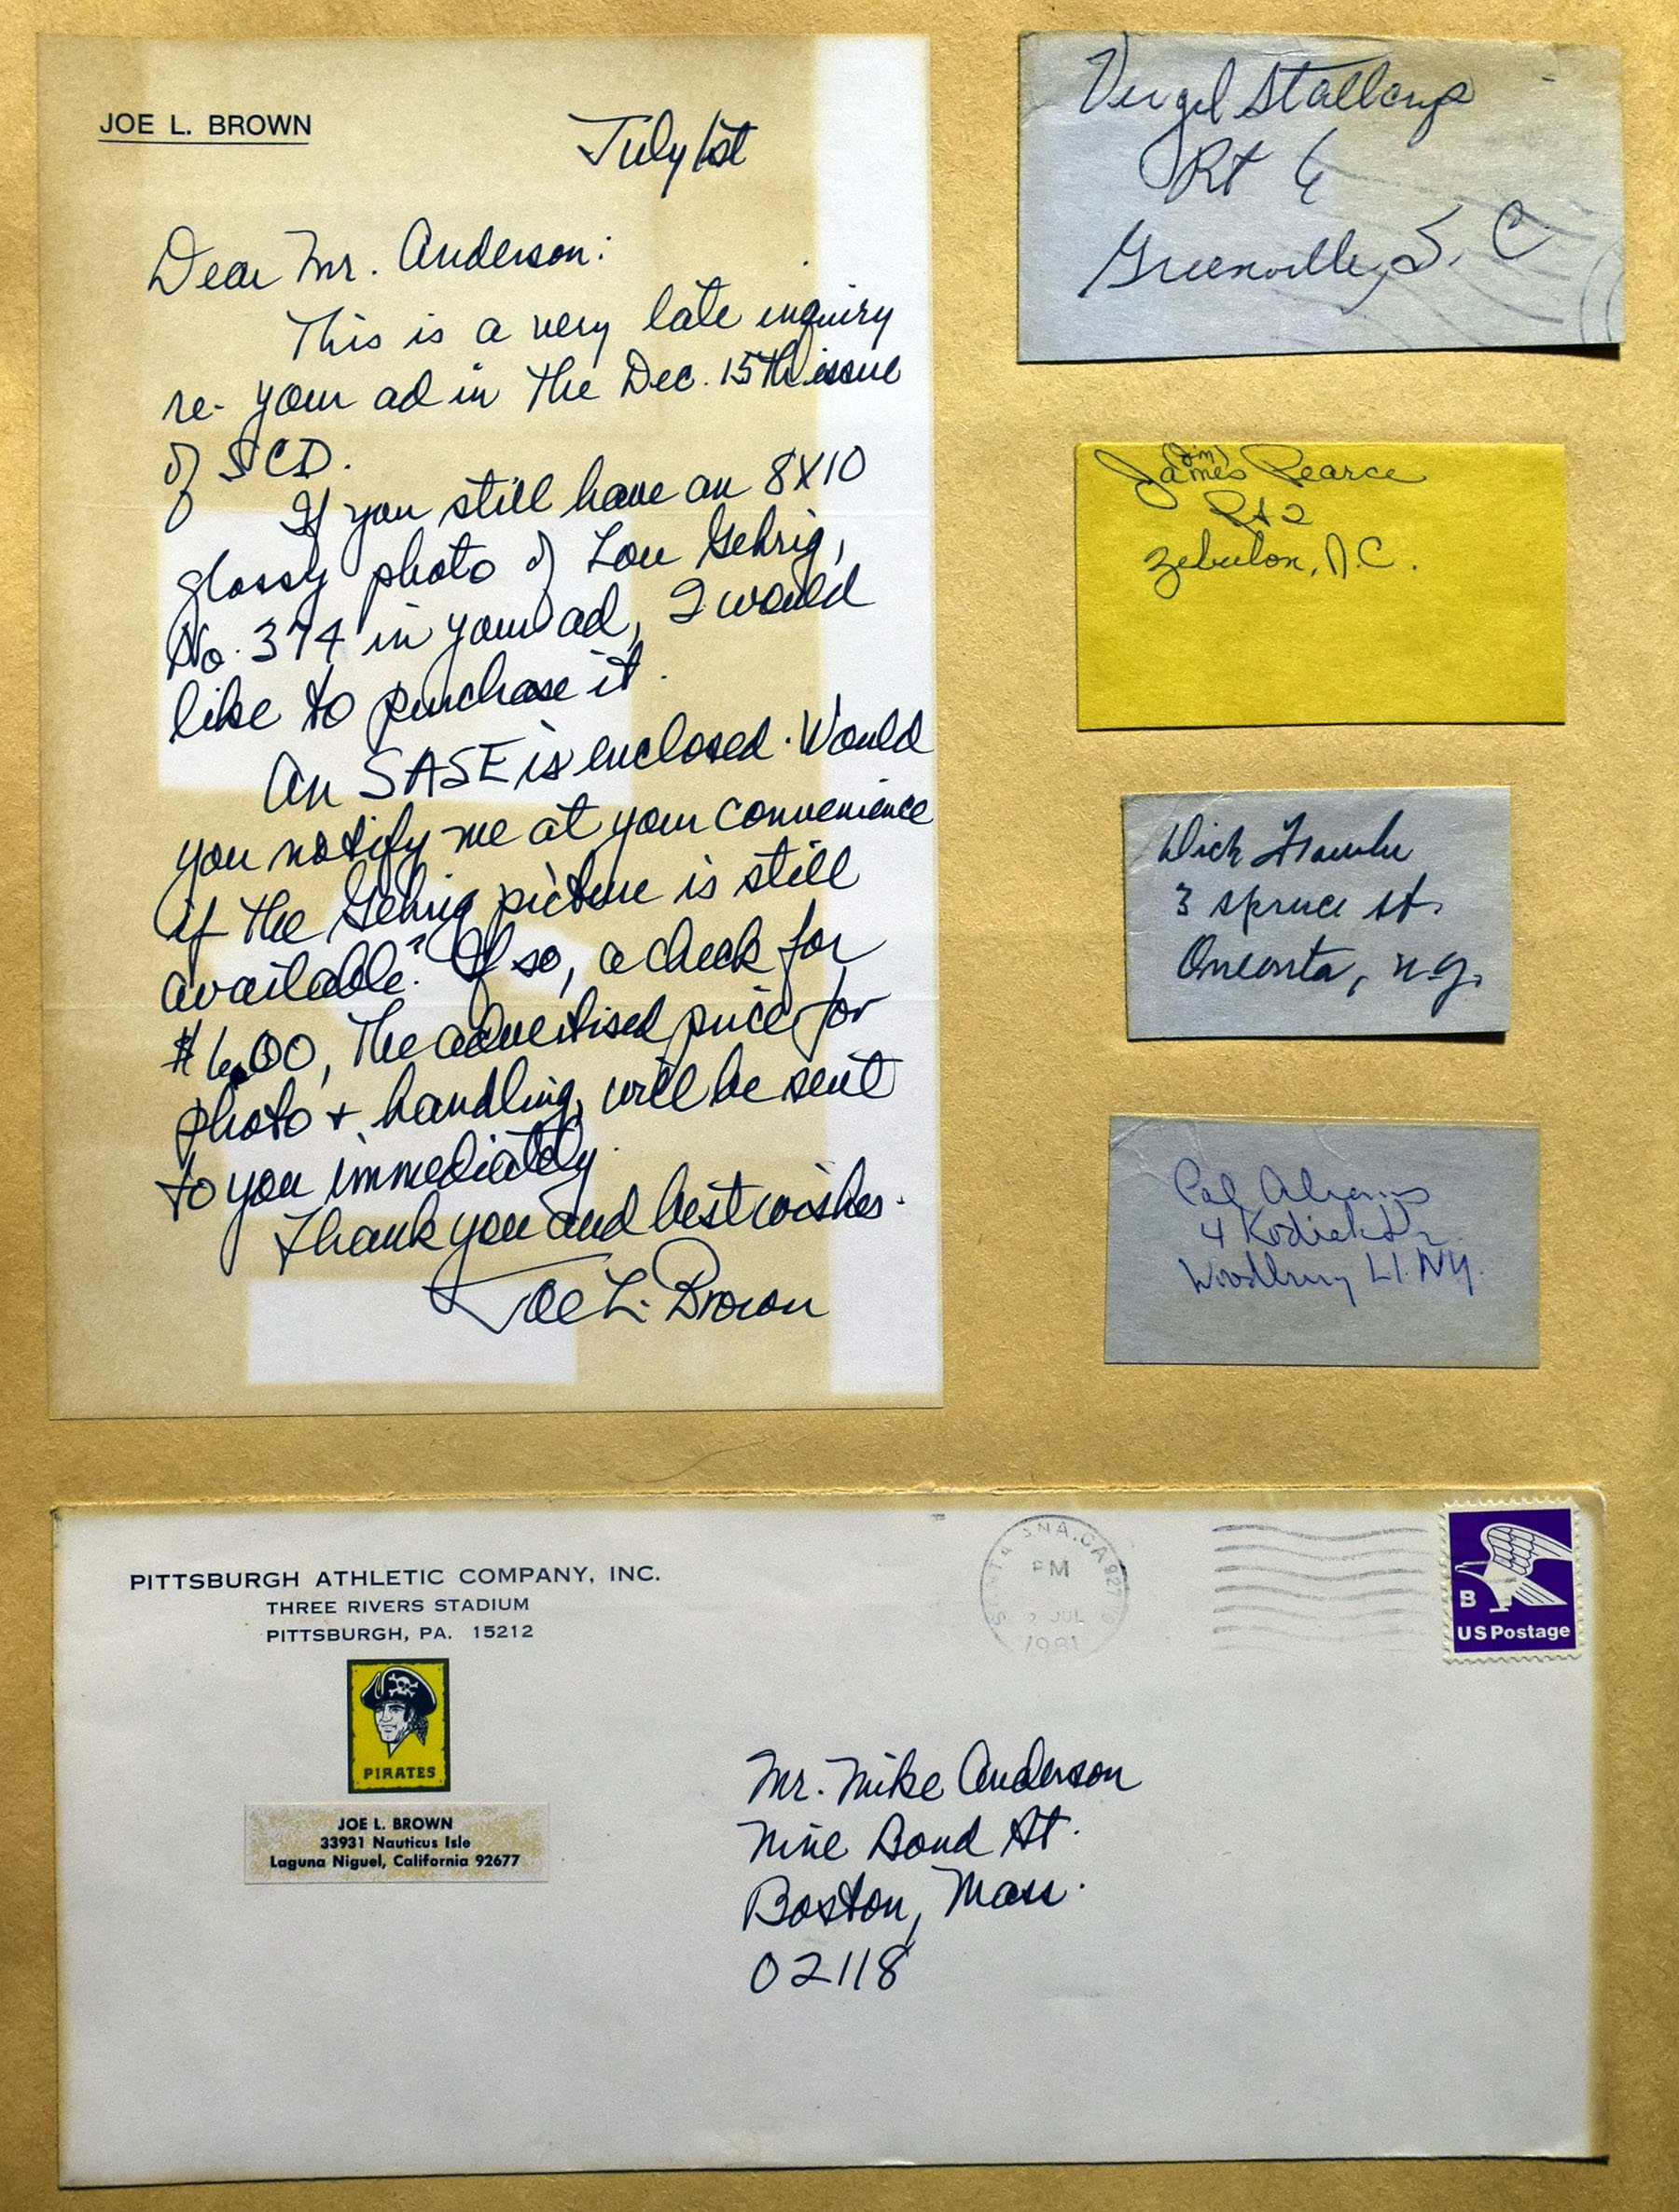 JOE L. BROWN
July 1st
Dear Mr. Anderson:
This is a very late inquiry
re- your ad in the Dec. 15th issue
of SCD.
If you still have an 8X10
glossy photo of Lou Gehrig,
No. 374 in your ad, I would
like to purchase it.
An SASE is enclosed. Would
you notify me at your convenience
if the Gehrig picture is still
available? If so, a check for
$6.00, the advertised price for
photo + handling, will be sent
to you immediately.
Thank you and best wishes.
Joe L. Brown
Virgil Stallcup
Rt 6
Greenville, S. C
(Jim)
James Pearce
Rt 2
Zebulon, N.C.
Dick
3 Spruce St.
Oneonta, N.Y.
Cal Abrams
4 Kodiak Dr.
Woodbury L.I. NY.
PITTSBURGH ATHLETIC COMPANY, INC.
THREE RIVERS STADIUM
PITTSBURGH, PA. 15212
PIRATES
JOE L. BROWN
33931 Nauticus Isle
Laguna Niguel, California 92677
SANTA ANA, CA 927
PM
JUL
1981
B
US Postage
Mr. Mike Anderson
Nine Bond St.
Boston, Mass.
02118